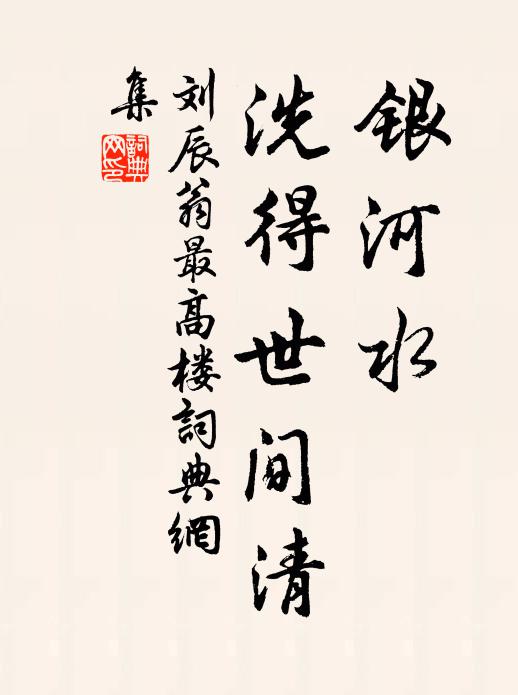 银河水
洗得世间清
刘辰翁最高楼詞典網
集
詞典
网印